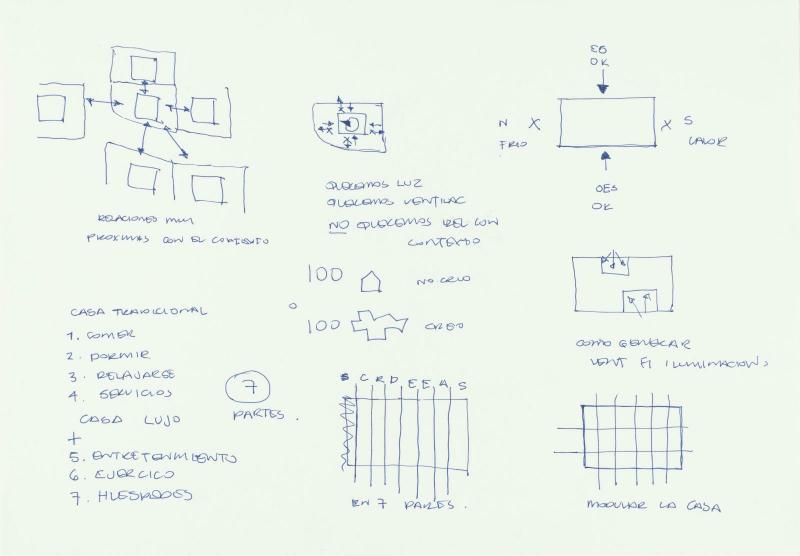 RELACIONES MUY
PROXIMAS CON EL CONTEXTO
QUEREMOS LUZ
QUEREMOS VENTILAC
NO QUEREMOS REL CON
CONTEXTO
ES
OK
N X
FRIO
X S
CALOR
OES
OK
100 NO CREO
o
100 CREO
COMO GENERAR
VENT E ILUMINACION
CASA TRADICIONAL
1. COMER
2. DORMIR
3. RELAJARSE
4. SERVICIOS
CASA LUJO
+
5. ENTRETENIMIENTO
6. EJERCICO
7. HUESPEDES
7
PARTES.
S C R D E E A S
EN 7 PARTES.
MODULAR LA CASA